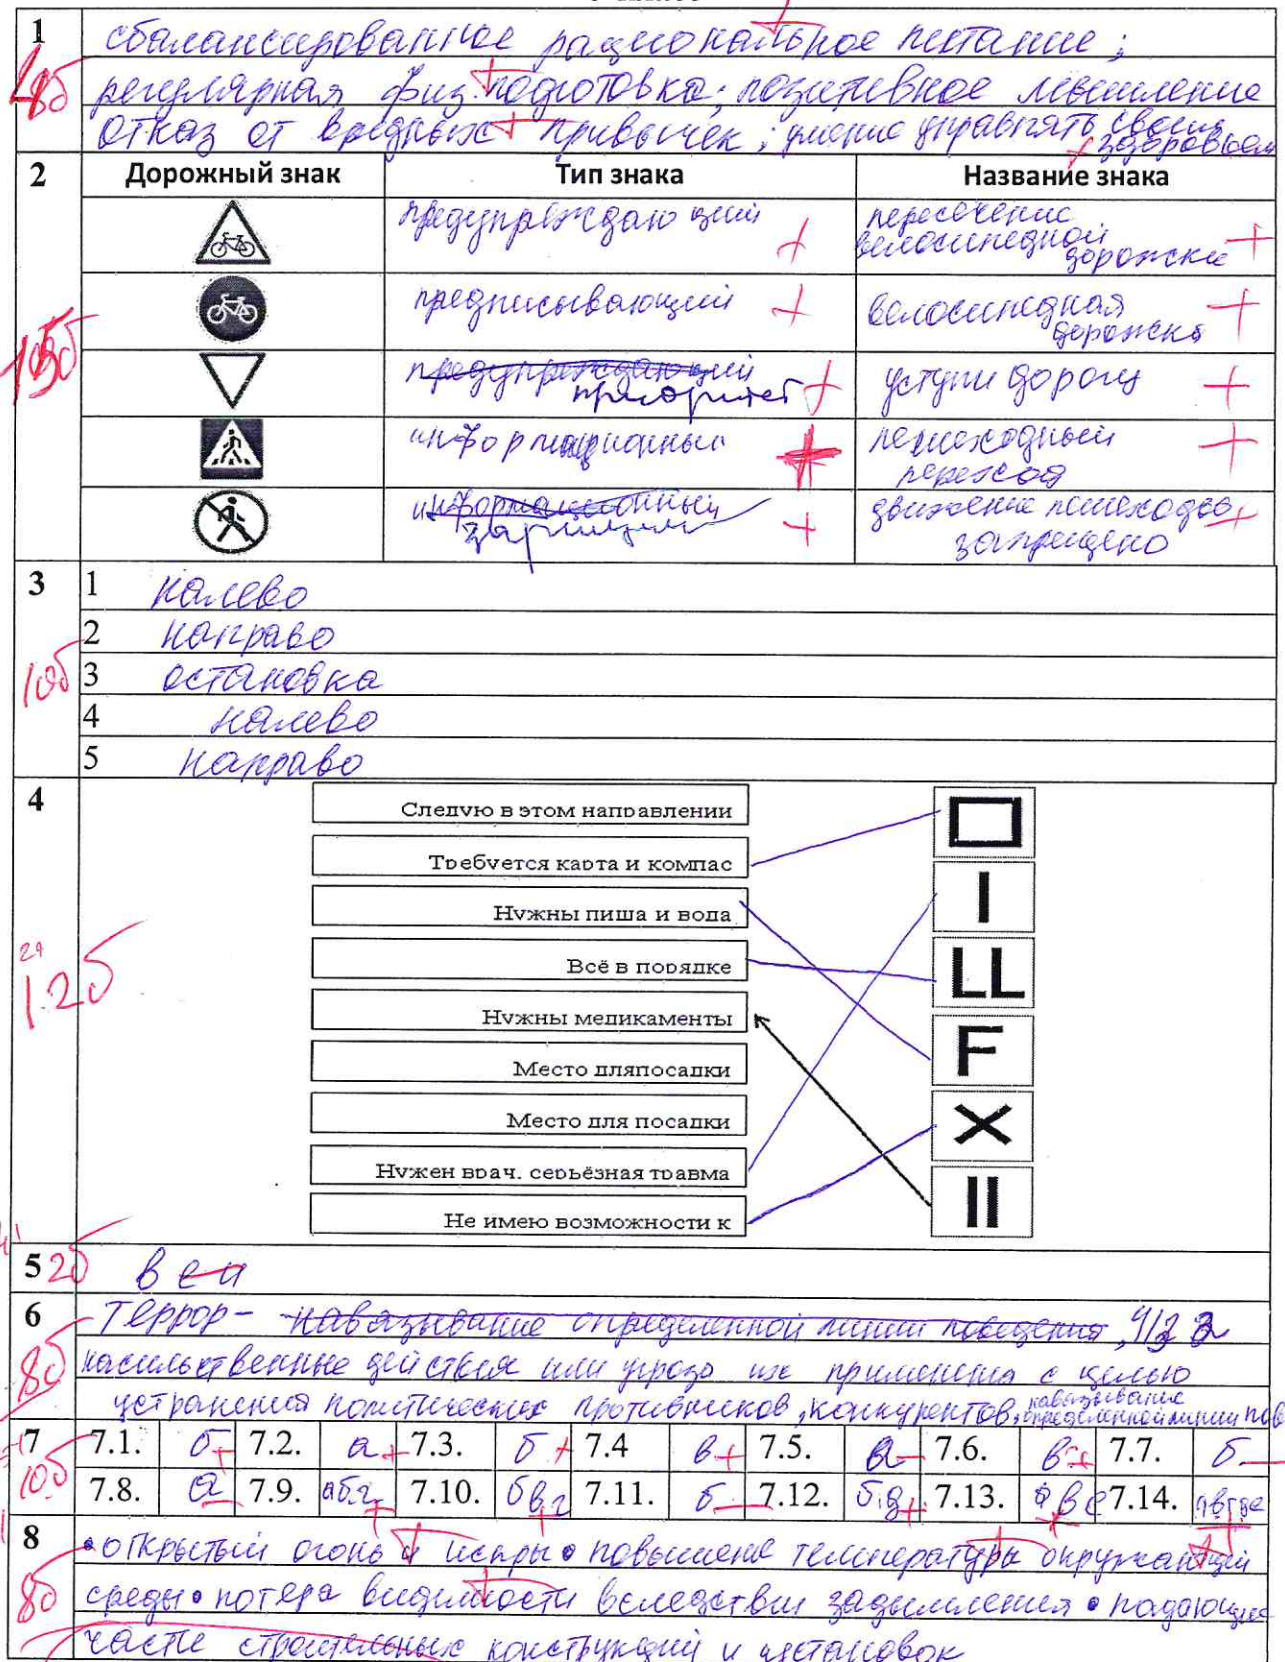 1
сбалансированное рациональное питание;
регулярная физ. подготовка; позитивное мышление
отказ от вредных привычек; умение управлять своим здоровьем
2 Дорожный знак Тип знака Название знака
предупреждающий + пересечение велосипедной дорожки +
предписывающий + велосипедная дорожка +
предупреждающий приоритет + уступи дорогу +
информационный + пешеходный переход +
информационный + движение пешеходов запрещено +
10б
3 1 налево
2 направо
3 остановка
4 налево
5 направо
10б
4
Следую в этом направлении
Требуется карта и компас
Нужны пища и вода
Всё в порядке
Нужны медикаменты
Место дляпосадки
Место для посадки
Нужен врач, серьёзная травма
Не имею возможности к
I
LL
F
X
II
12б
5 2б
6 Террор - навязывание определенной линии поведения,
насильственные действия или угроза их применения с целью
устранения политических противников, конкурентов, навязывание определенной линии пов
8б
7 7.1. б + 7.2. а + 7.3. б + 7.4 в + 7.5. а – 7.6. в + 7.7. б –
10б 7.8. а – 7.9. абг + 7.10. бвг + 7.11. б – 7.12. б,д + 7.13. 7.14.
8 • открытый огонь и искры • повышение температуры окружающей
среды • потеря видимости вследствии задымления • падающие
части строительных конструкций и установок
8б